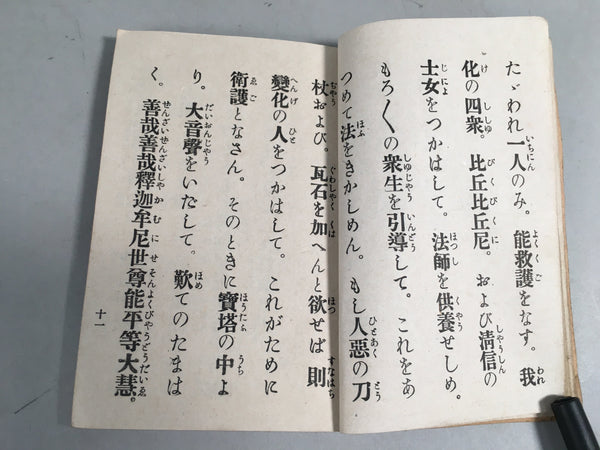 たゞわれ一人のみ。能救護をなす。我
化の四衆。比丘比丘尼。および清信の
士女をつかはして。法師を供養せしめ。
もろ〱の衆生を引導して。これをあ
つめて法をきかしめん。もし人惡の刀
杖および。瓦石を加へんと欲せば則
變化の人をつかはして。これがために
衛護となさん。そのときに寶塔の中よ
り。大音聲をいだして。歎てのたまは
く。善哉善哉釋迦牟尼世尊能平等大慧。
十一